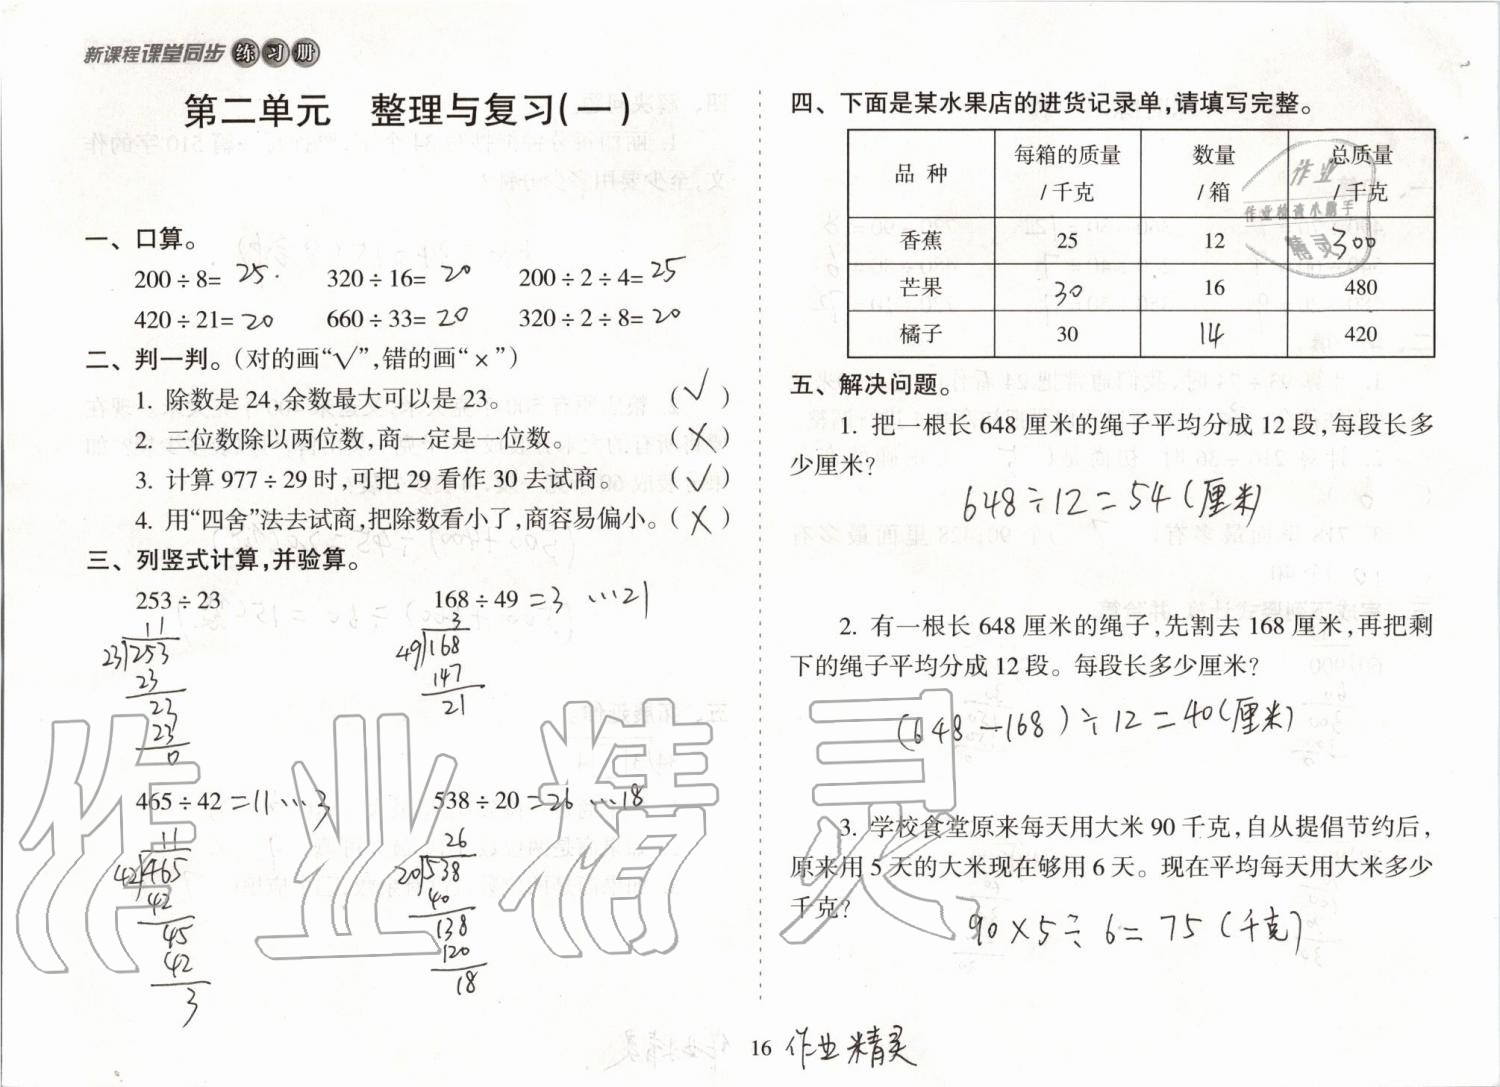 新课程课堂同步练习册
第二单元 整理与复习(一)
一、口算。
200÷8= 25. 320÷16= 20 200÷2÷4= 25
420÷21= 20 660÷33= 20 320÷2÷8= 20
二、判一判。(对的画“√”,错的画“×”)
1. 除数是24,余数最大可以是23。 (√)
2. 三位数除以两位数,商一定是一位数。 (×)
3. 计算977÷29时,可把29看作30去试商。 (√)
4. 用“四舍”法去试商,把除数看小了,商容易偏小。(×)
三、列竖式计算,并验算。
253÷23 168÷49 =3 …21
11
23 253
23
23
23
0
3
49 168
147
21
465÷42 =11 …3 538÷20 =26 …18
11
42 465
42
45
42
3
26
20 538
40
138
120
18
四、下面是某水果店的进货记录单,请填写完整。
品种 每箱的质量/千克 数量/箱 总质量/千克
香蕉 25 12 300
芒果 30 16 480
橘子 30 14 420
作业
作业检查小助手
精灵
五、解决问题。
1. 把一根长648厘米的绳子平均分成12段,每段长多
少厘米?
648÷12=54(厘米)
2. 有一根长648厘米的绳子,先割去168厘米,再把剩
下的绳子平均分成12段。每段长多少厘米?
(648-168)÷12=40(厘米)
3. 学校食堂原来每天用大米90千克,自从提倡节约后,
原来用5天的大米现在够用6天。现在平均每天用大米多少
千克?
90×5÷6=75(千克)
作业精灵
16 作业精灵